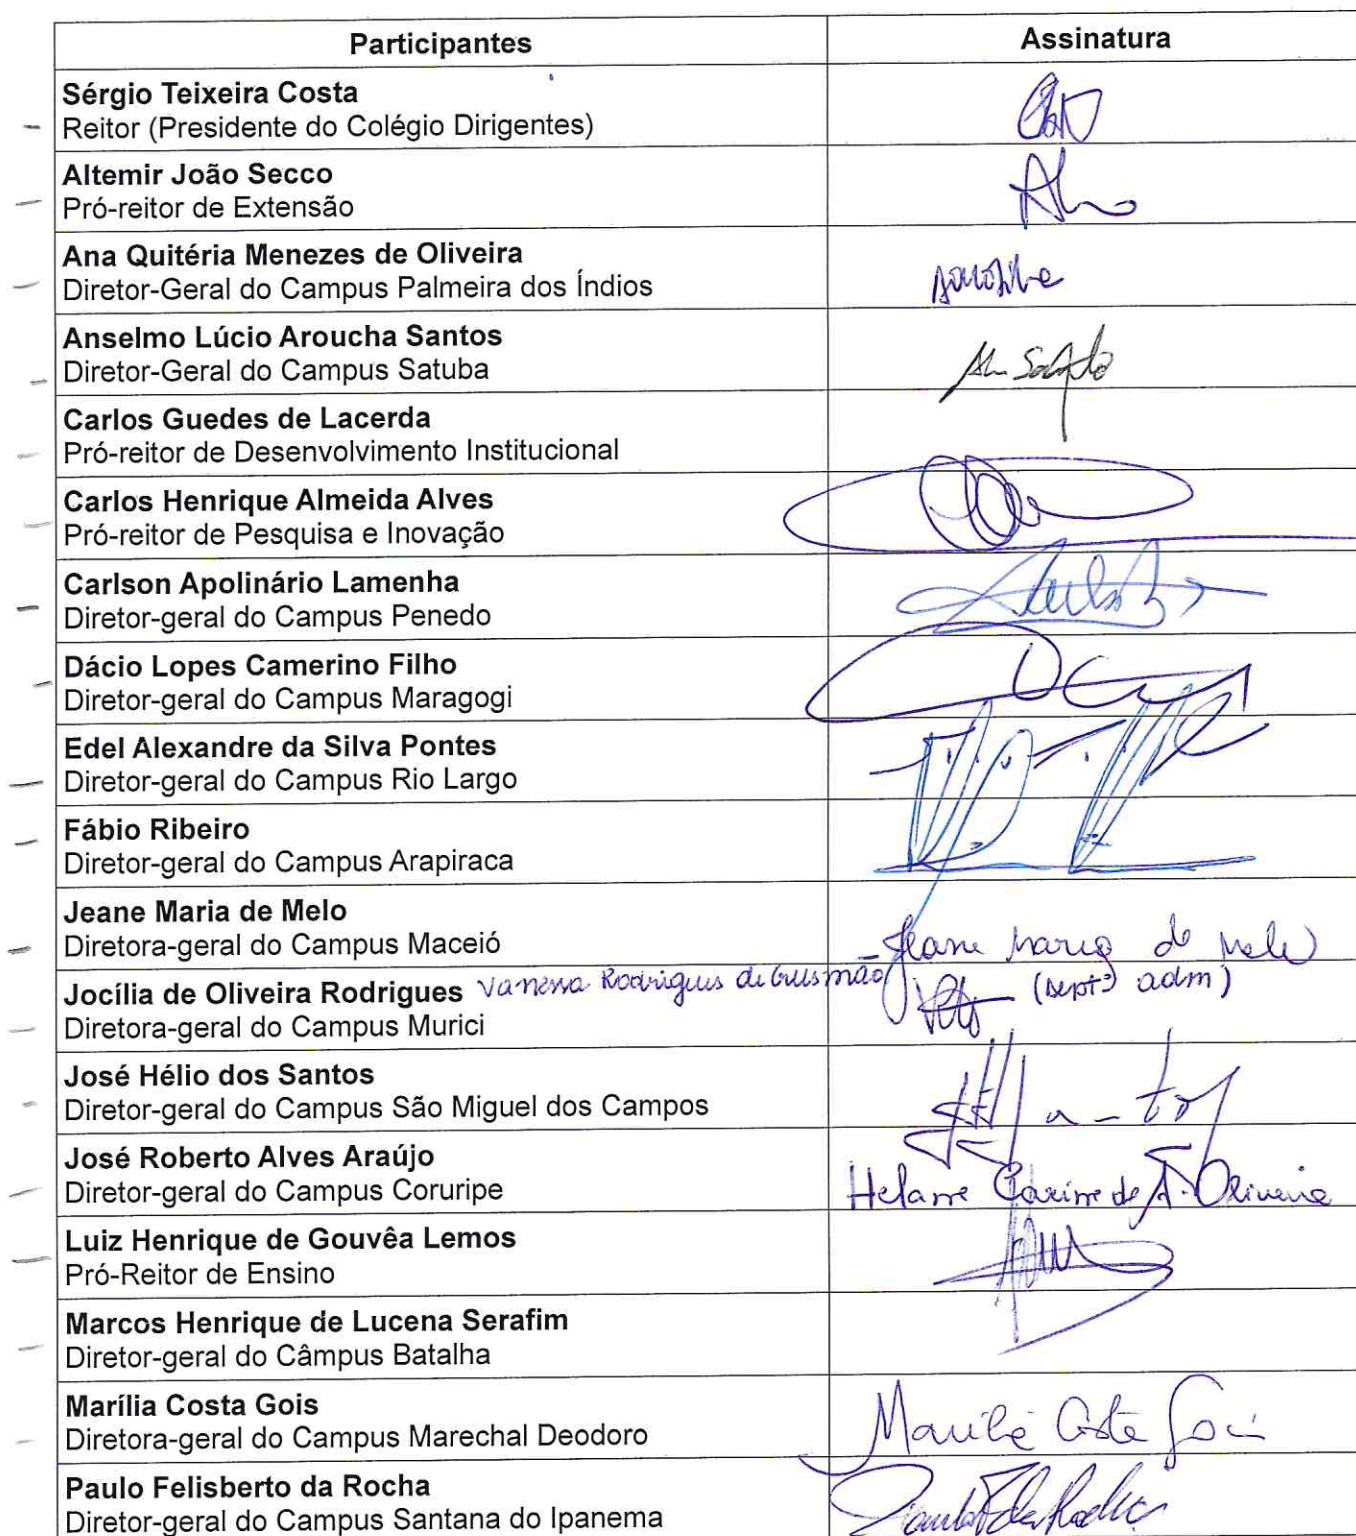 Participantes
Assinatura
Sérgio Teixeira Costa
Reitor (Presidente do Colégio Dirigentes)
Altemir João Secco
Pró-reitor de Extensão
Ana Quitéria Menezes de Oliveira
Diretor-Geral do Campus Palmeira dos Índios
Anselmo Lúcio Aroucha Santos
Diretor-Geral do Campus Satuba
Carlos Guedes de Lacerda
Pró-reitor de Desenvolvimento Institucional
Carlos Henrique Almeida Alves
Pró-reitor de Pesquisa e Inovação
Carlson Apolinário Lamenha
Diretor-geral do Campus Penedo
Dácio Lopes Camerino Filho
Diretor-geral do Campus Maragogi
Edel Alexandre da Silva Pontes
Diretor-geral do Campus Rio Largo
Fábio Ribeiro
Diretor-geral do Campus Arapiraca
Jeane Maria de Melo
Diretora-geral do Campus Maceió
Jeane Maria de Melo
Jocília de Oliveira Rodrigues Vanessa Rodrigues de Gusmão
adm)
Diretora-geral do Campus Murici
José Hélio dos Santos
Diretor-geral do Campus São Miguel dos Campos
José Roberto Alves Araújo
Diretor-geral do Campus Coruripe
de A. Oliveira
Luiz Henrique de Gouvêa Lemos
Pró-Reitor de Ensino
Marcos Henrique de Lucena Serafim
Diretor-geral do Câmpus Batalha
Marília Costa Gois
Diretora-geral do Campus Marechal Deodoro
Marília Costa Gois
Paulo Felisberto da Rocha
Diretor-geral do Campus Santana do Ipanema